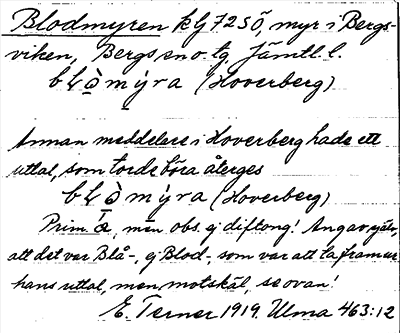 Blodmyren k G7250, myr i Bergs-
viken, Bergs sn o. tg, Jämtl. l.
mýra (Hoverberg)
Annan meddelare i Hoverberg hade ett
uttal, som torde böra återges
mýra (Hoverberg)
Prim. men obs. ej diftong! Angav själv,
att det var Blå-, ej Blod-, som var att ta fram ur
hans uttal, men motskäl, se ovan!
E. Terner 1919. Ulma 463:12